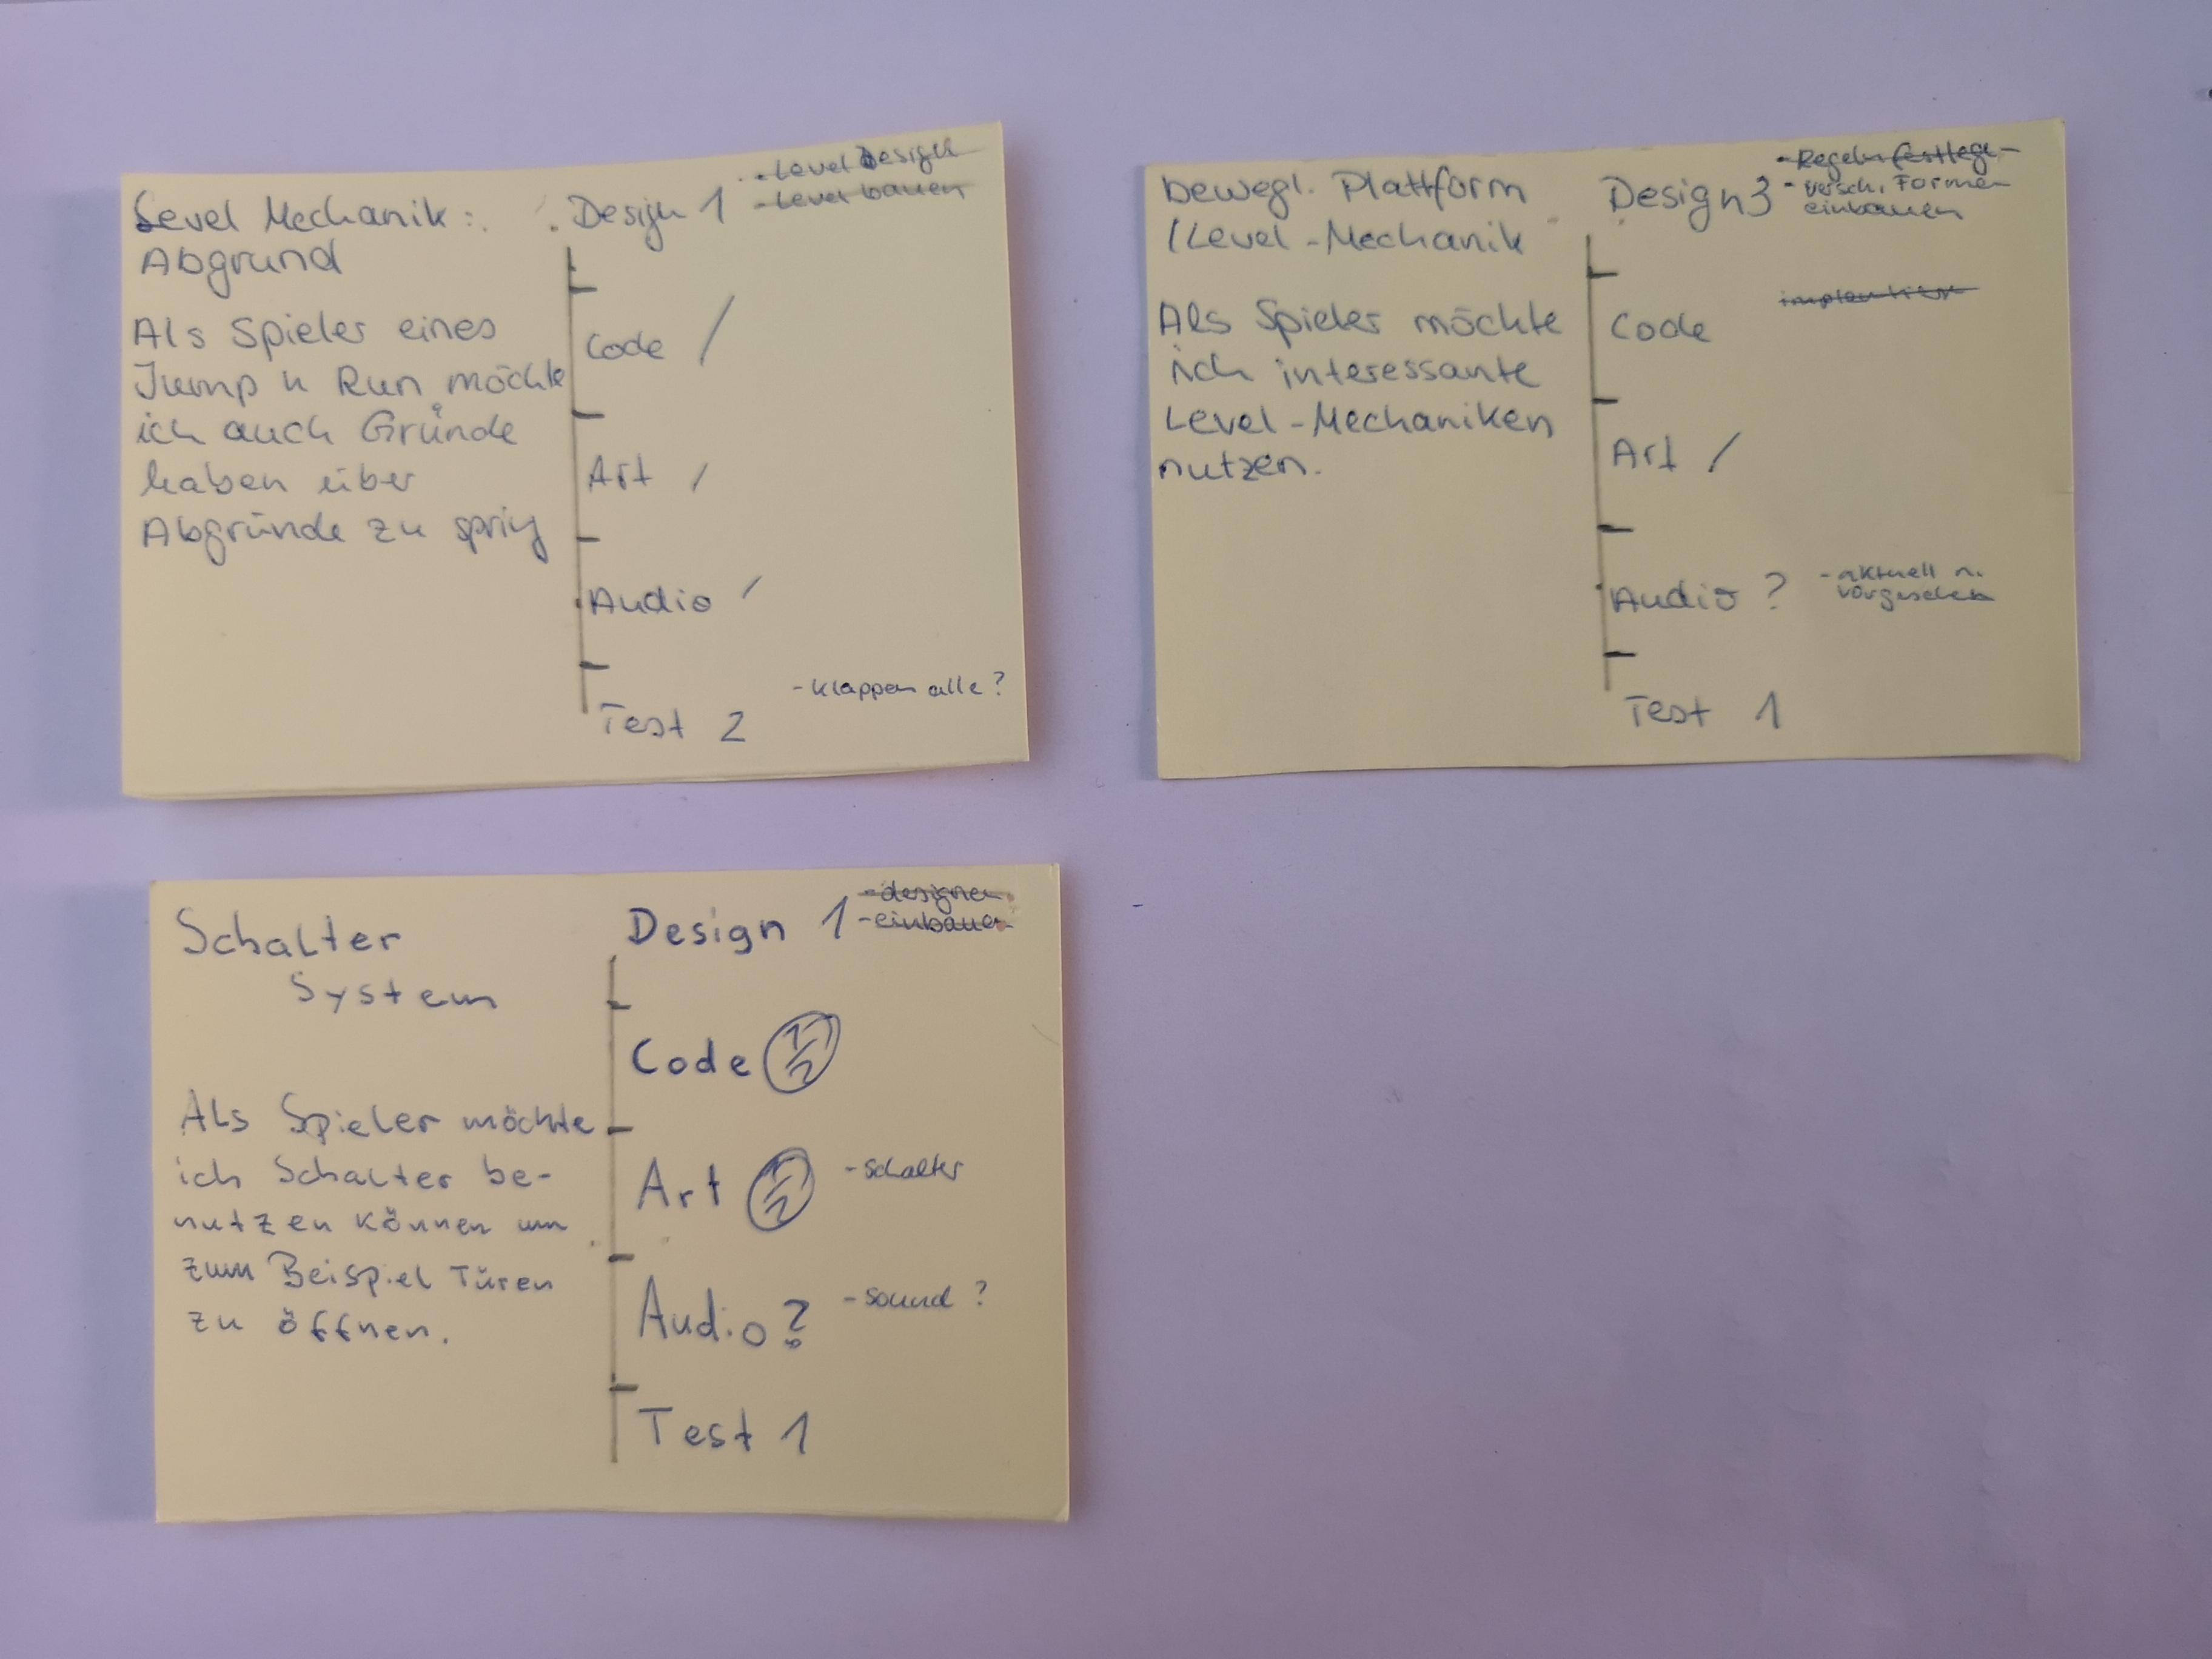 Level Mechanik:
Abgrund
Als Spieler eines
Jump n Run möchte
ich auch Gründe
haben über
Abgründe zu spring
Design 1
- Level Design
- Level bauen
Code /
Art /
Audio /
- Klappen alle?
Test 2
bewegl. Plattform
(Level-Mechanik
Als Spieler möchte
ich interessante
Level-Mechaniken
nutzen.
Design 3
- Regeln festlege
- versch. Formen
einbauen
Code
Art /
Audio ?
- aktuell n.
vorgesehen
Test 1
Schalter
System
Als Spieler möchte
ich Schalter be-
nutzen können um
zum Beispiel Türen
zu öffnen.
Design 1
- designen
- einbauen
Code 1/2
Art 1/2
- Schalter
Audio?
- Sound ?
Test 1